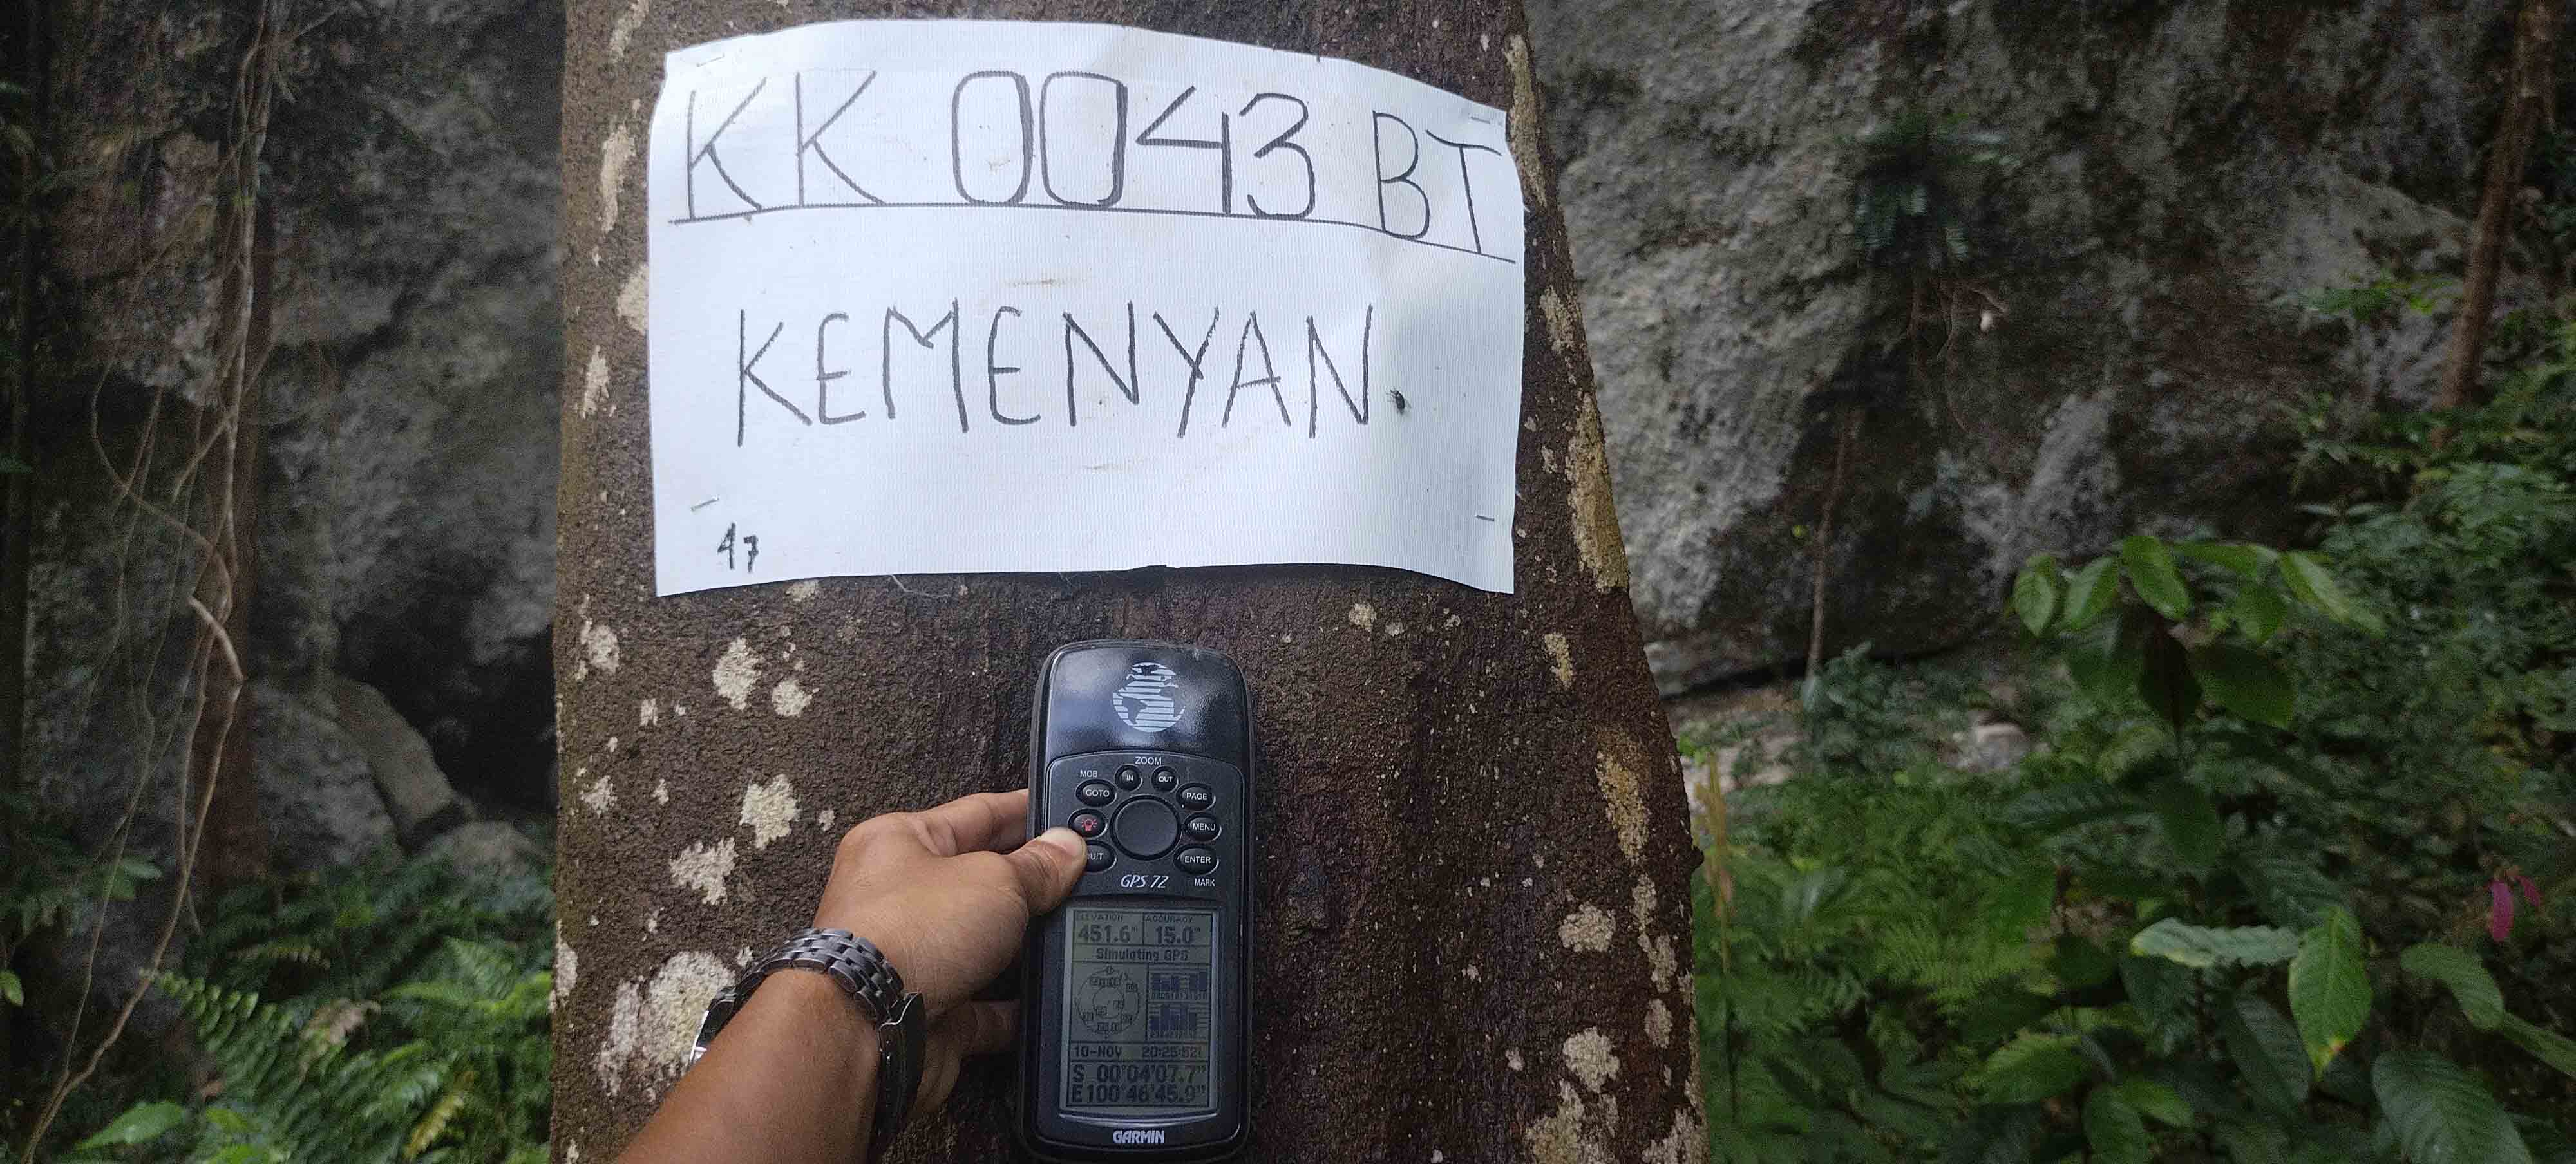 KK 0043 BT
KEMENYAN.
47
ZOOM
MOB IN OUT
GOTO PAGE
MENU
UIT ENTER
GPS 72 MARK
ELEVATION ACCURACY
451.6m 15.0m
Simulating GPS
10-NOV 20:25:52
S 00°04'07.7"
E100°46'45.9"
GARMIN